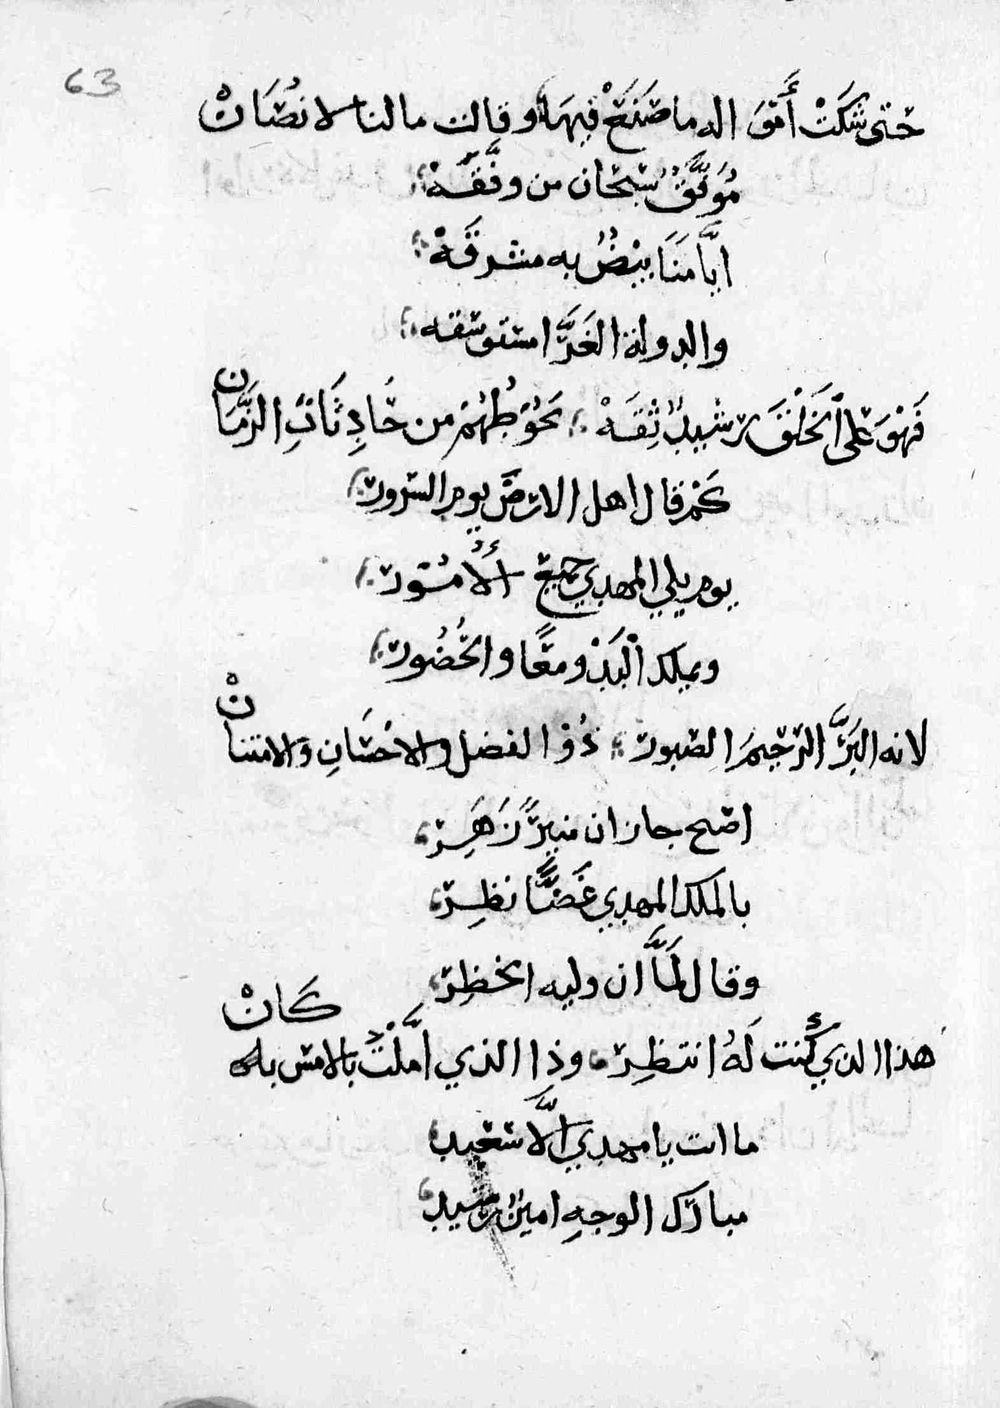 63
حتى شكَتْ أَمْوَالُه ما صَنَعْ فِيهَا وقالت مالنا لا نُصَانْ
مُوَفَّقٌ سُبحان من وفَّقَهْ
ايَّامنَا بِيْضٌ به مشرقَهْ
والدولة الغَرَّا به مستوسقه
فَهْوَ على الخَلْقِ رشيدٌ ثِقَهْ يَحُوْطُهُمْ من حَادِثَاتِ الزَّمَانْ
كَمْ قال اهل الارض يوم السرور
يوم يلي المهدي جميع الأُمُور
ويملك البَدْو معًا والحُضُور
لانه البَرُّ الرحيم الصبور ذُو الفضل والاحسَانِ والامتنانْ
اصبح جازان منيرًا زَهِر
بالملك المهدي غَضًّا نظِر
وقال لَمَّا ان وليه الخظِر
هذا الذي كُنت لَهُ انتظِر وذا الذي أمَّلْتُ بالامس كَانْ
ما انت يا مهدي الَّا سَعيد
مبارك الوجهِ امينٌ رشيد